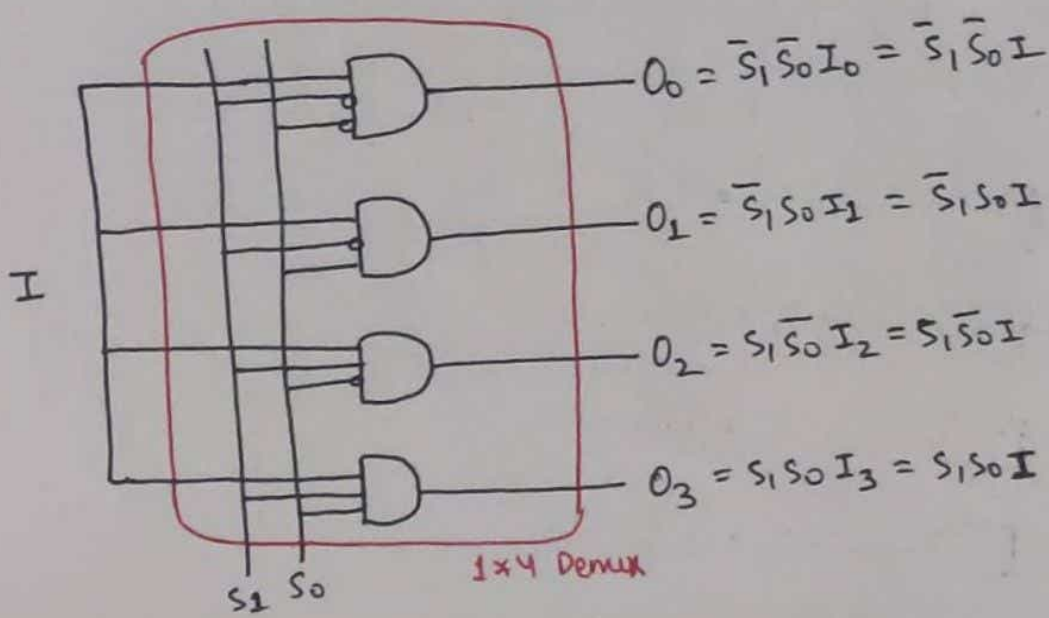 O₀ = S̅₁S̅₀I₀ = S̅₁S̅₀I
O₁ = S̅₁S₀I₁ = S̅₁S₀I
I
O₂ = S₁S̅₀I₂ = S₁S̅₀I
O₃ = S₁S₀I₃ = S₁S₀I
1*4 Demux
S1 S₀